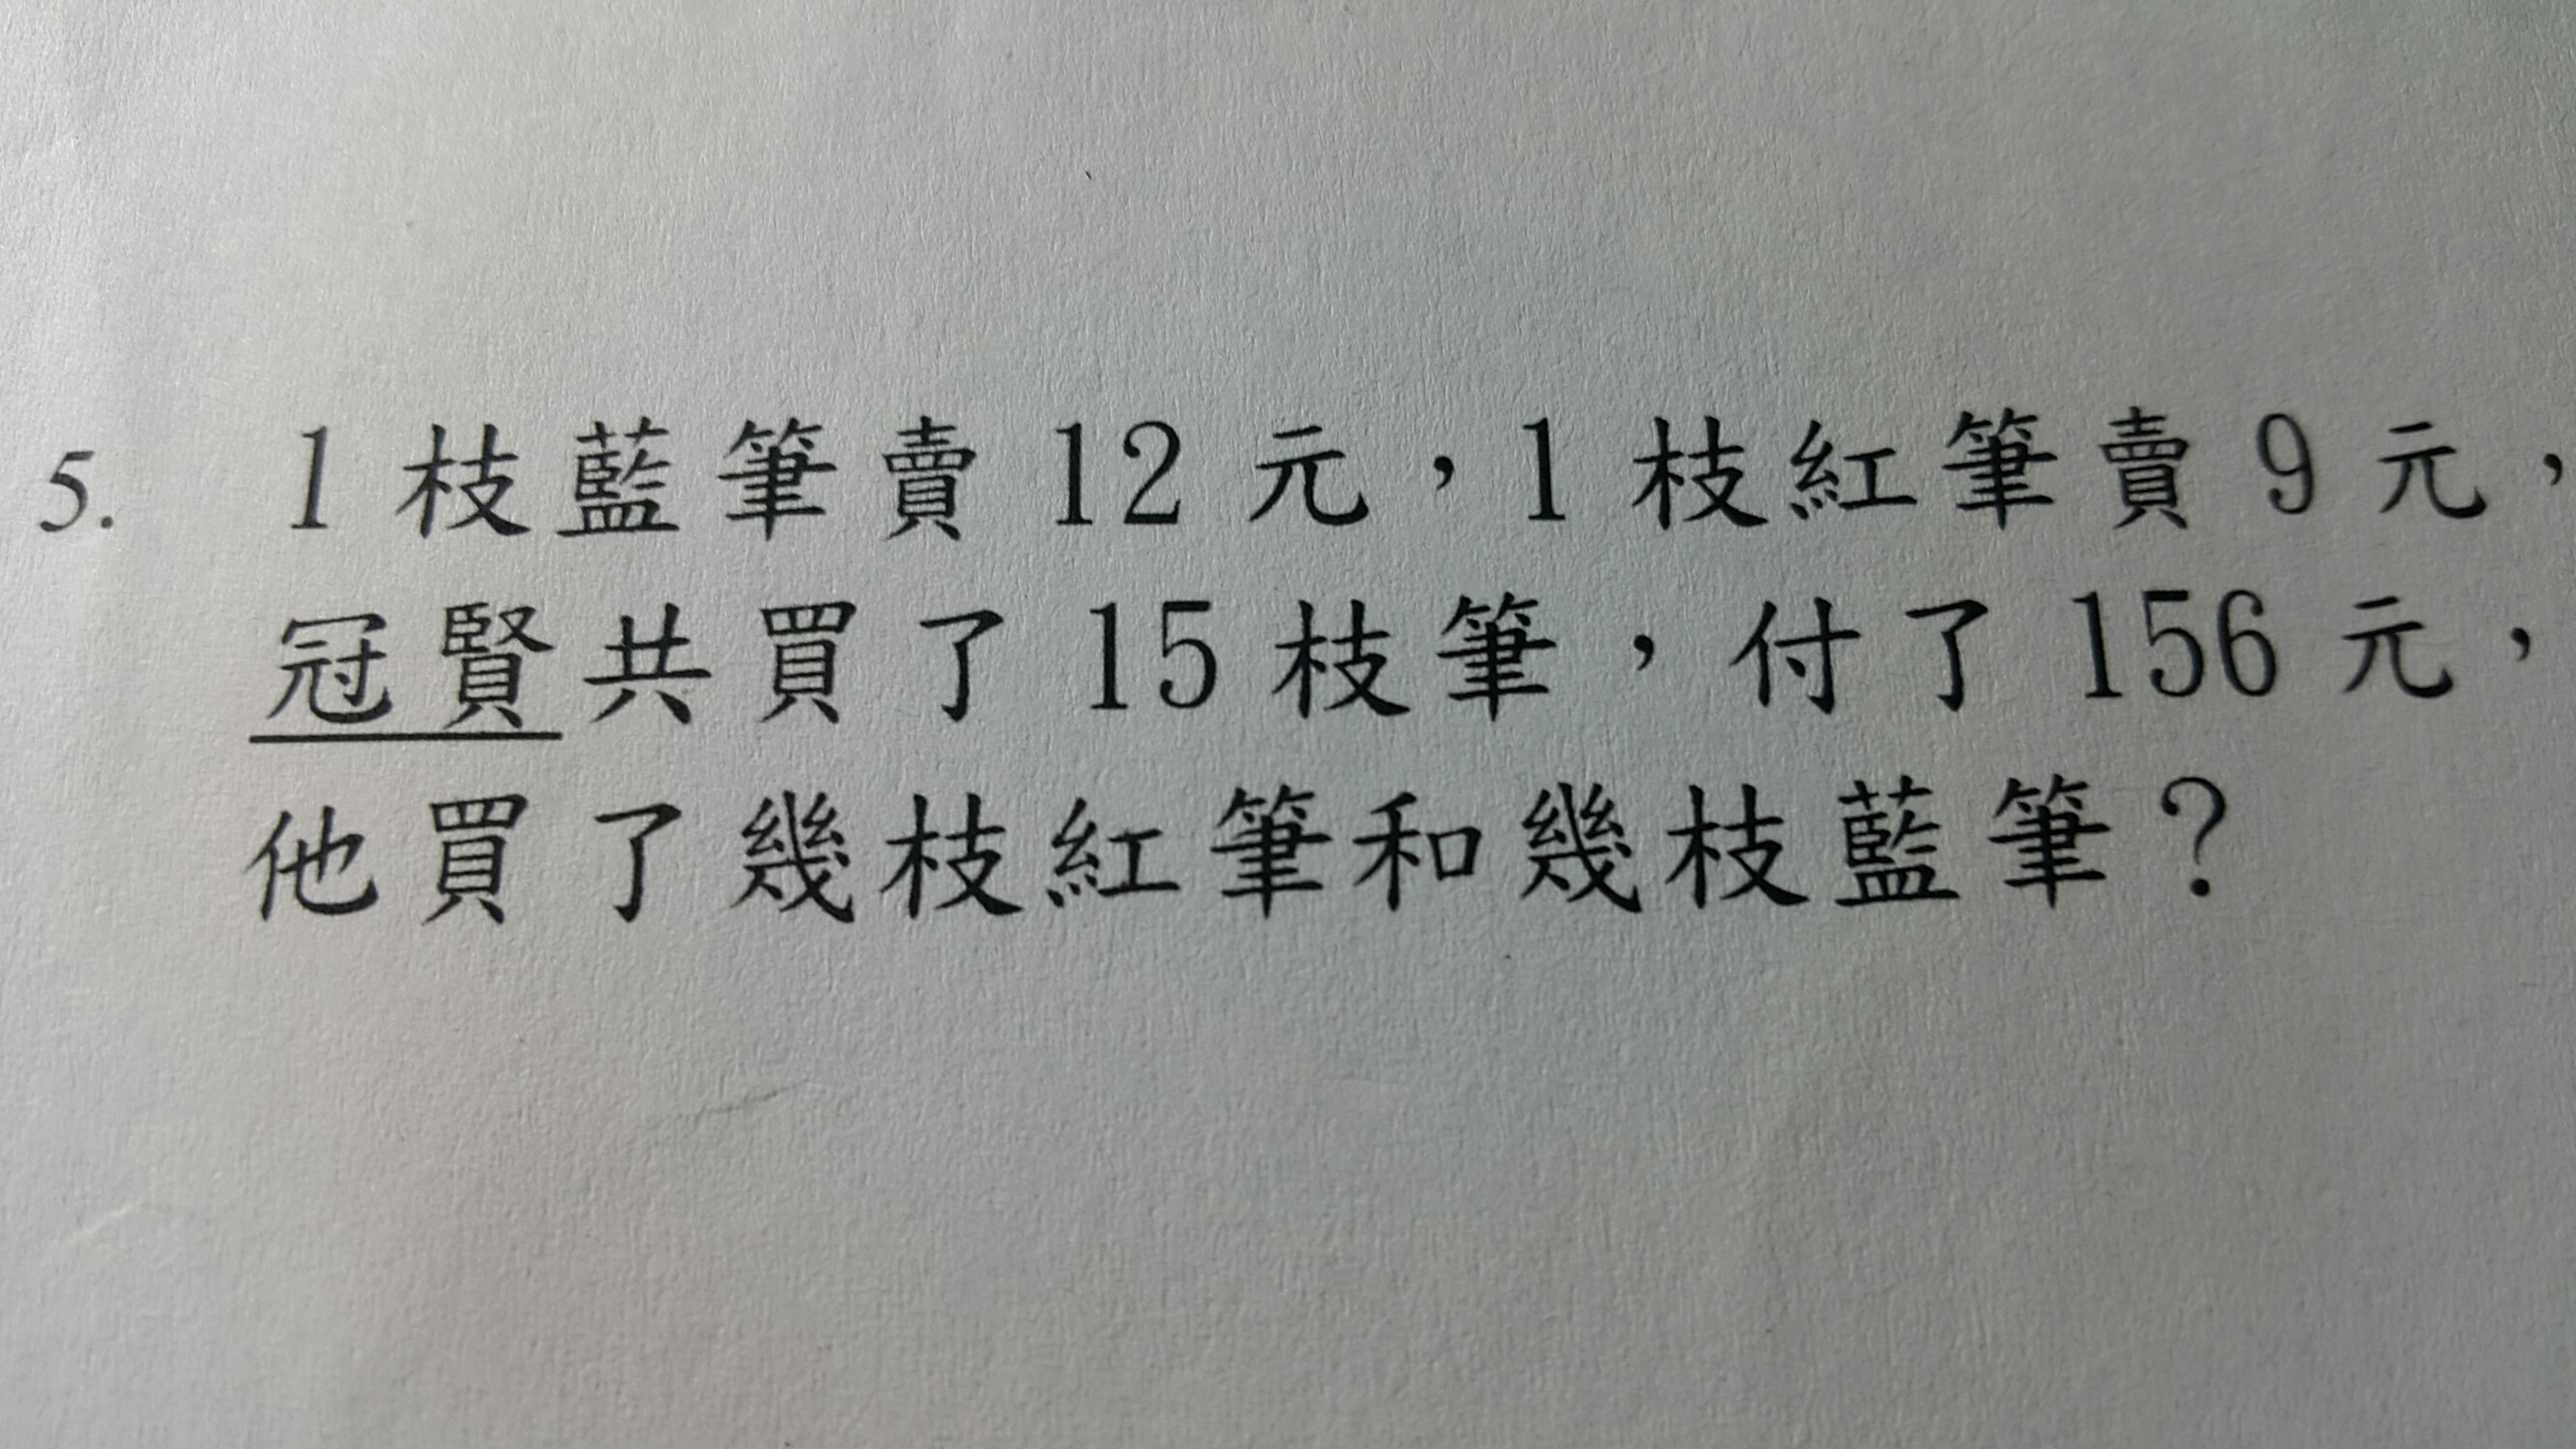 5. 1 枝藍筆賣 12 元，1 枝紅筆賣 9 元，
冠賢共買了 15 枝筆，付了 156 元，
他買了幾枝紅筆和幾枝藍筆？